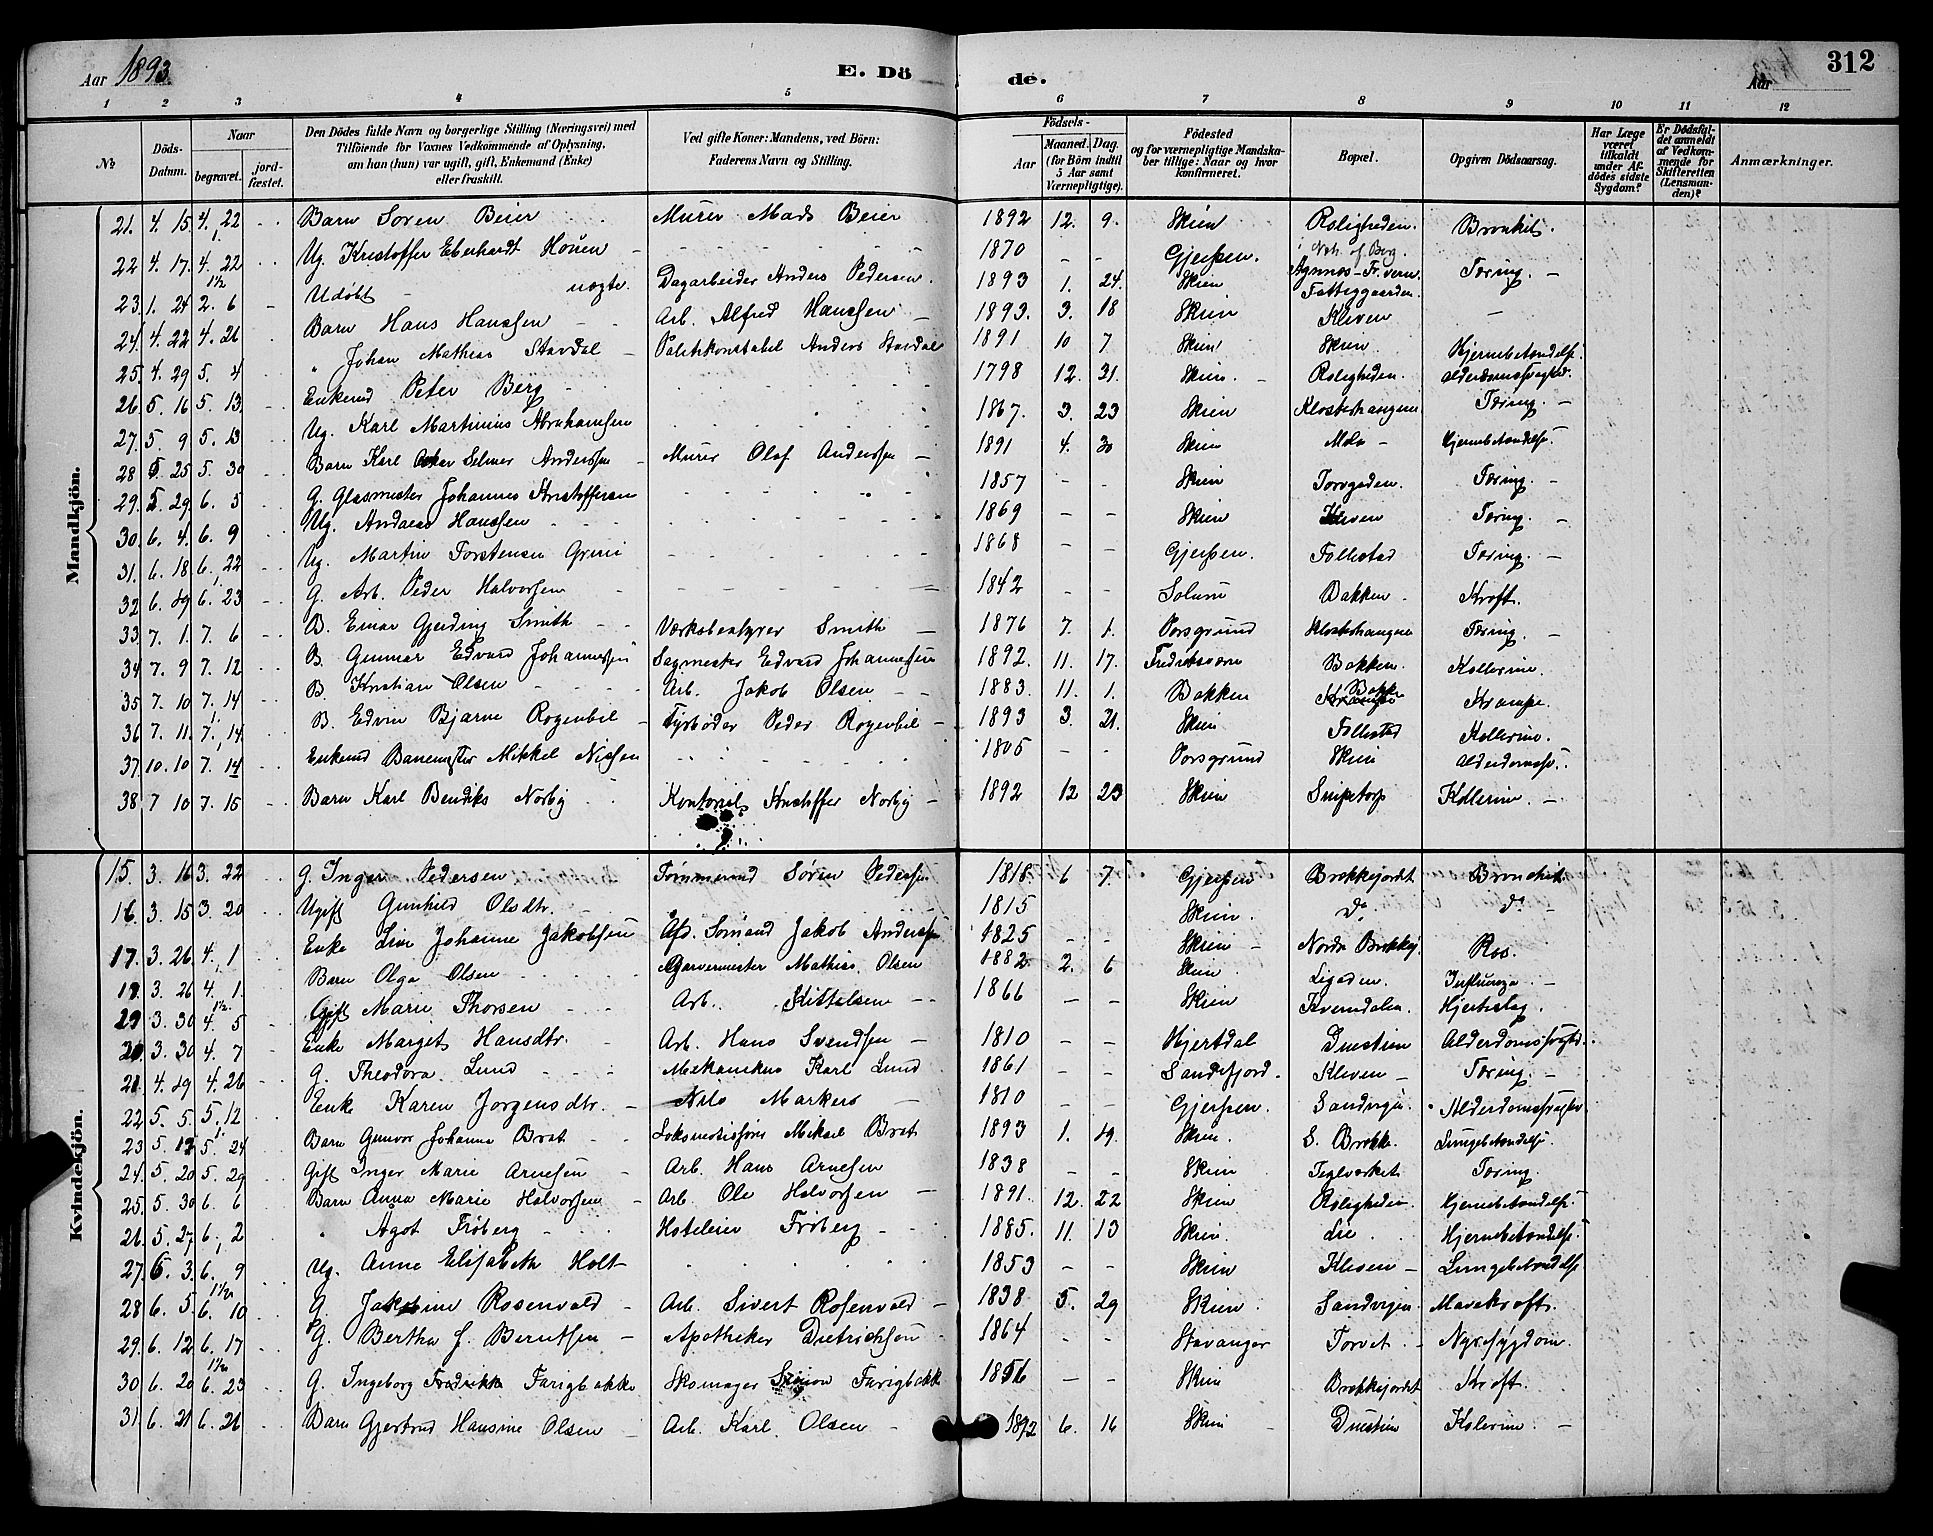 Aar 1893. E. Dö de. Aar 312
1 2 3 4 5 6 7 8 9 10 11 12
No Döds-Datum. Naar begravet. jordfæstet. Den Dödes fulde Navn og borgerlige Stilling (Næringsvei) med Tilföiende for Voxnes Vedkommende af Oplysning, om han (hun) var ugift, gift, Enkemand (Enke) eller fraskilt. Ved gifte Koner: Mandens, ved Börn: Faderens Navn og Stilling. Födsels- Aar Maaned. Dag. (for Börn indtil 5 Aar samt Værnepligtige). Födested og for værnepligtige Mandskaber tillige: Naar og hvor konfirmeret. Bopæl. Opgiven Dödsaarsag. Har Læge været tilkaldt under Afdödes sidste Sygdom? Er Dödsfaldet anmeldt af Vedkommende for Skifteretten (Lensmanden)? Anmærkninger.
Mandkjön.
21. 4. 15. 4. 22 Barn Søren Beier Murer Mads Beier 1892 12. 9. Skien Roligheden. Bronkit.
22 4. 17. 4. 22 Ug. Kristoffer Eberhardt Houen 1870 Gjerpen. Tæring.
23. 1. 24 2. 6 Udøbt uægte. Dagarbeider Anders Pedersen. 1893 1. 24. Skien Fattiggaarden.
24. 4. 22 4. 26 Barn Hans Hanssen Arb. Alfred Hanssen 1893. 3. 18 Skien Kleven
25. 4. 29 5. 4 " Johan Mathias Stavdal Politikonstabel Anders Stavdal 1891 10 7 Skien Skien Hjernebetændelse.
26 5. 16 5. 13 Enkemd Peter Berg 1798 12. 31. Skien. Roligheden. Alderdomssvaghed.
27. 5. 9 5. 13 Ug. Karl Martinius Abrahamsen 1867. 3. 23 Skien Klosterhaugen Tæring.
28 5. 25 5. 30 Barn Karl Oskar Selmer Anderssen Murer Olaf Anderssen 1891 4. 30 Skien Mæla Hjernebetændelse.
29. 5 29. 6. 5 G. Glasmester Johannes Kristoffersen 1857 Skien Torvgaden. Tæring.
30. 6. 4. 6. 9 Ug. Andreas Hanssen 1869 Skien Kleven Tæring.
31. 6. 18 6. 22 Ug. Martin Torstensen Grini 1868 Gjerpen. Follestad Tæring.
32 6. 19 6. 23 G. Arb. Peder Halvorsen 1842 Solum Bakken. Kræft.
33. 7. 1. 7. 6 B. Einar Gjerding Smith Værksbestyrer Smith 1876 7. 1. Porsgrund Klosterhaugen Tæring.
34 7. 9 7. 12 B. Gunnar Edvard Johannessen Sagmester Edvard Johannessen 1892. 11. 17. Fredriksværn Bakken. Kollerine.
35 7. 10 7. 14 B. Kristian Olsen Arb. Jakob Olsen 1883. 11. 1. Bakken Bakken Krampe.
36 7. 11. 7. 14. B. Edvin Bjarne Rogenbil Fyrbøder Peder Rogenbil 1893 3. 21. Skien Follestad Kollerine.
37 10. 10 7. 14 Enkemd Banemester Mikkel Nielsen 1805 Porsgrund Skien Alderdomssv.
38. 7 10 7. 15 Barn Karl Bendiks Norby Kontorist Kristoffer Norby 1892 12 23 Skien Snipetorp Kollerine.
Kvindekjön.
15. 3. 16 3. 22 G. Inger Pedersen Tømmermd Søren Pedersen 1818. 6 7. Gjerpen Brekkejordet Bronchit.
16 3. 15 3. 20 Ugift Gunhild Olsdtr. 1815 Skien. do do
17. 3. 26. 4. 1 Enke Live Johanne Jakobsen Afd. Sømand Jakob Anderssen 1825 Skien Nordre Brekkej. Ros.
19. 3. 26 4. 1. Barn Olga Olsen Garvermester Mathias Olsen 1882 2. 6 Skien Ligaden. Influenza.
3. 30 4. 5 Gift Marie Thorsen Arb. Kittelsen 1866 Skien Tverrdalen. Hjerteslag.
20. 3. 30 4. 7 Enke Margit Hansdtr. Arb. Hans Svendsen 1810 Hjertdal Duestien Alderdomssvaghd.
21. 4. 19 4. 26 G. Theodora Lund Mekanikus Karl Lund 1861 Sandefjord. Kleven Tæring.
22 5. 5. 5. 12 Enke Karen Jørgensdtr. Nils Markers 1810 Gjerpen. Sandvigen. Alderdomssvaghed
23 5. 19 5. 24 Barn Gunvor Johanna Brat Lokomotivfører Mikael Brat 1893 1. 19. Skien. S. Brekke. Lungebetændelse.
24. 5. 20 5. 29 Gift Inger Marie Arnesen Arb. Hans Arnesen 1838 Skien Teglverket Tæring.
25. 5. 30 6. 6 Barn Anna Marie Halvorsen Arb. Ole Halvorsen 1891. 12. 22 Skien Roligheden Hjernebetændelse.
26. 5. 27 6. 2 " Aagot Frøberg Hoteleier Frøberg 1885. 11. 13 Skien. Lie Hjernebetændelse.
27. 6. 3. 6. 9 Ug. Anne Elisabeth Holt 1853 Skien Kleven Lungebetændelse
28 6. 5 6. 10 G. Jakobine Rosenvold Arb. Sivert Rosenvold 1838 5. 29 Skien Sandvigen Mavekræft.
29. 6. 12 6. 17 G. Bertha J. Berntsen Apotheker Dietrichson 1864 Stavanger Torvet Nyresygdom.
30 6. 20 6. 23 G. Ingeborg Fredrikke Farigbakke Skomager Simon Farigbakke 1856 Skien Brekkejordet Kræft.
31 6. 21 6. 26 Barn Gjertrud Hansine Olsen Arb. Karl Olsen 1892 6. 16 Skien Duestien Kolerine.